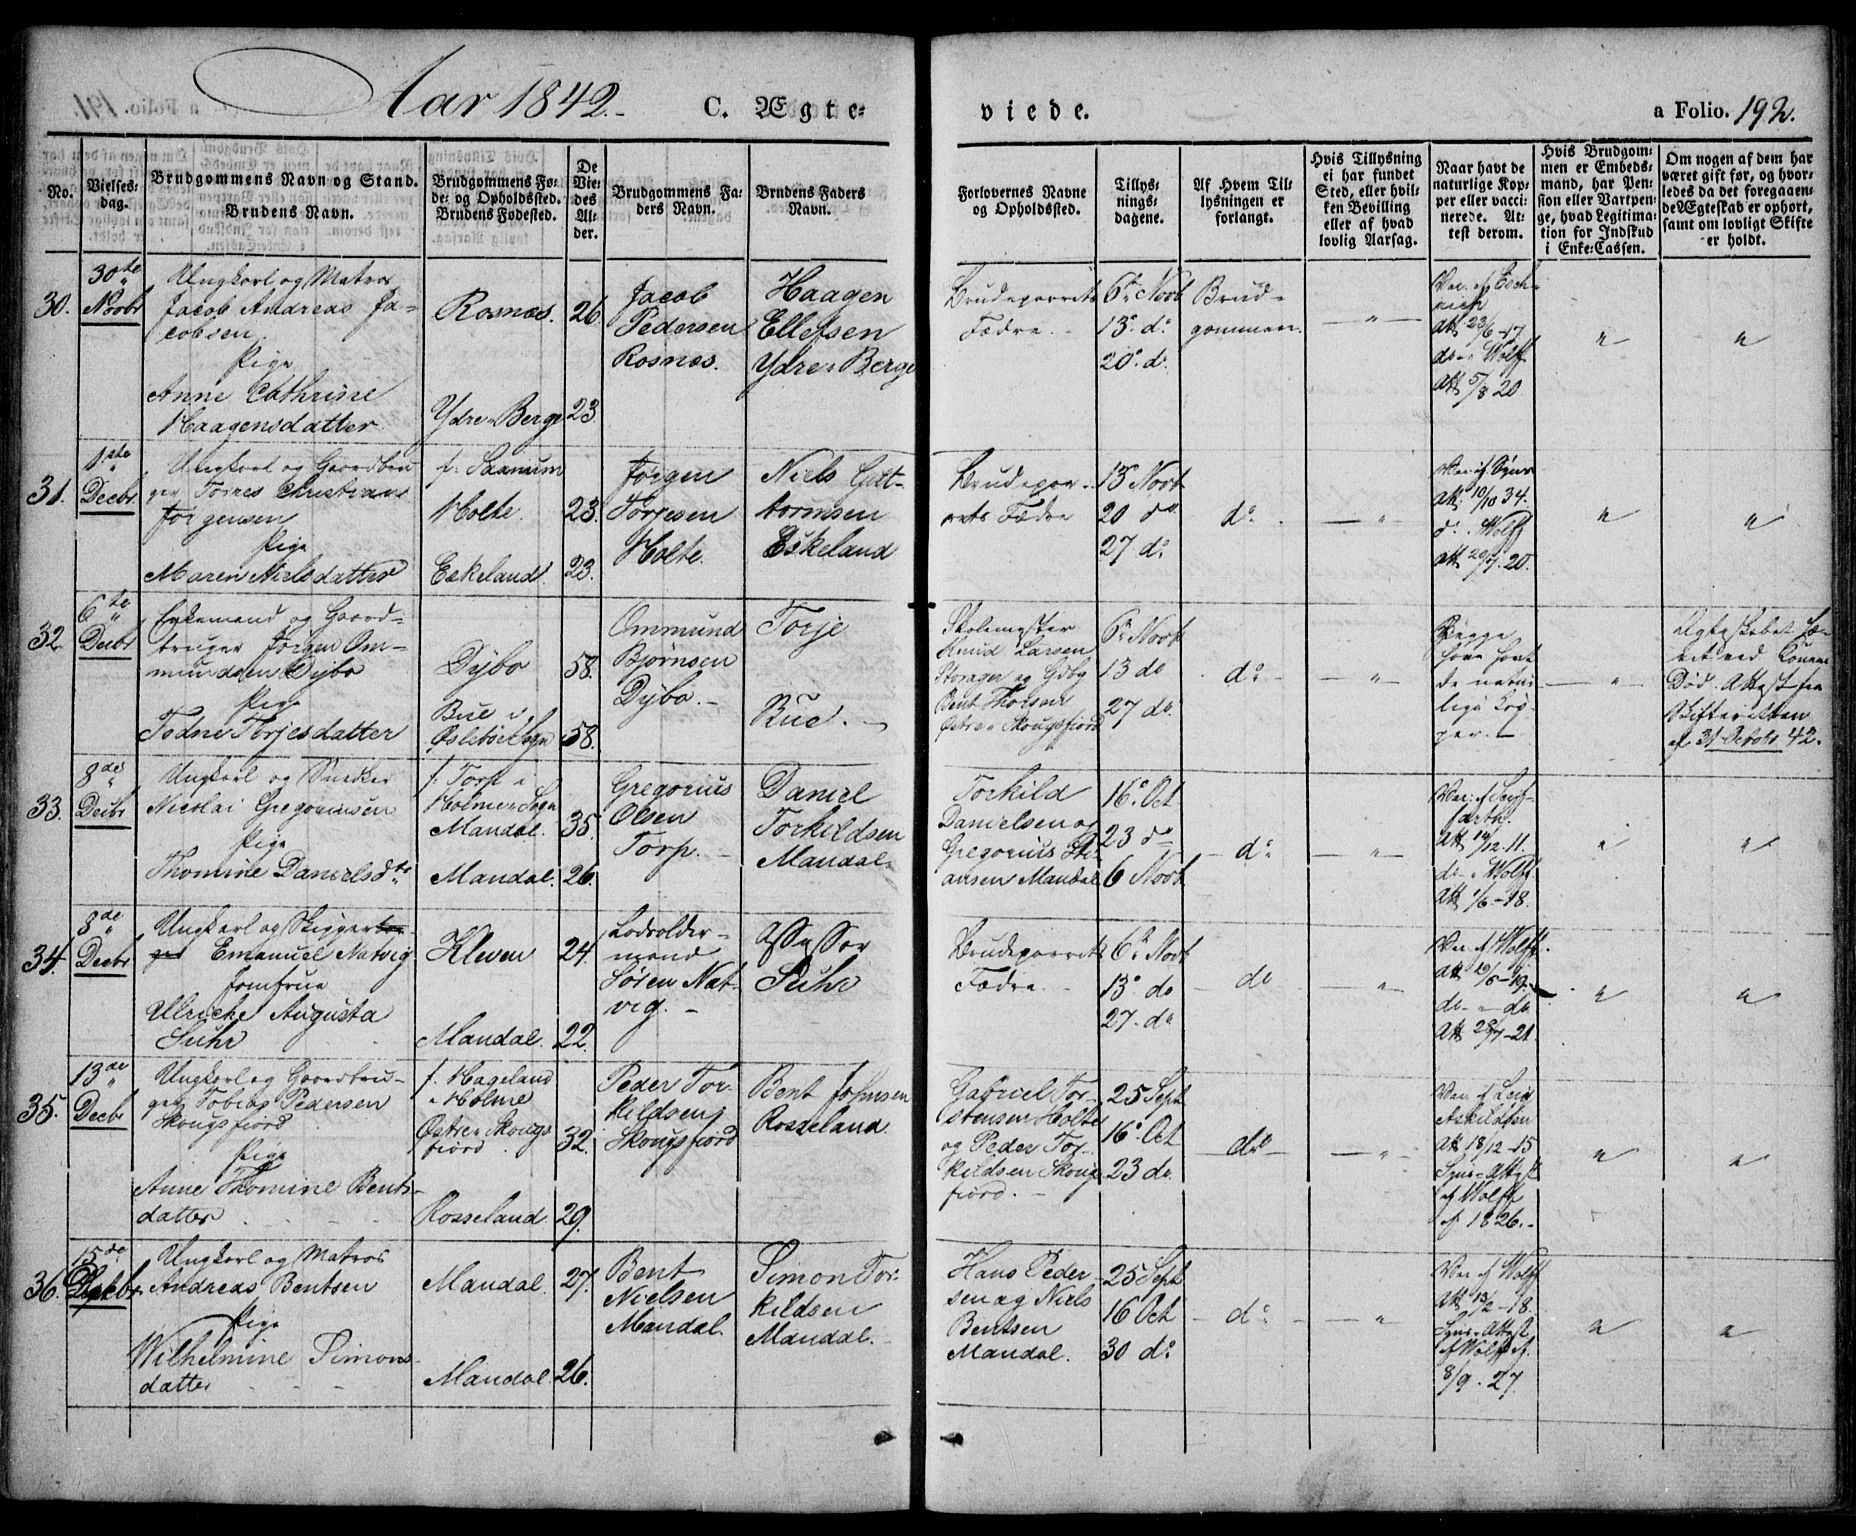 Aar 1842.
C. Ægte-
viede.
a Folio. 192.
No.
Vielses-
dag.
Brudgommens Navn og Stand.
Brudens Navn.
Brudgommens Fø-
de- og Opholdsted.
Brudens Fødested.
De
Vie-
des
Al-
der.
Brudgommens Fa-
ders Navn.
Brudens Faders
Navn.
Forlovernes Navne
og Opholdsted.
Tillys-
nings-
dagene.
Af Hvem Til-
lysningen er
forlangt.
Hvis Tillysning
ei har fundet
Sted, eller hvil-
ken Bevilling
eller af hvad
lovlig Aarsag.
Naar havt de
naturlige Kop-
per eller vacci-
nerede. At-
test derom.
Hvis Brudgom-
men er Embeds-
mand, har Pen-
sion eller Vartpen-
ge, hvad Legitima-
tion for Indskud
i Enke-Cassen.
Om nogen af dem har
været gift før, og hvor-
ledes da det foregaaen-
de Ægteskab er ophørt,
samt om lovligt Skifte
er holdt.
30.
30te
Novbr
Ungkarl og Matros
Jacob Andreas Ja-
cobsen.
Pige
Anne Cathrine
Haagensdatter.
Rosnæs.
Ydre Berge
26
23
Jacob
Pedersen
Rosnæs.
Haagen
Ellefsen
Ydre Berge
Brudeparrets
Fædre.
6te Novb
13. do
20. do
Brud-
gommen.
Att 23/6 - 17
do Wolff
Att 5/8 20
31.
1ste
Decbr
Ungkarl og Gaardbru-
ger Torres Christian
Jørgensen
Pige
Maren Nielsdatter
f. Saanum
Holte.
Eskeland.
23.
23.
Jørgen
Torjesen
Holte.
Niels Gut-
tormsen
Eskeland
Brudepar-
rets Fædre
13 Novb
20 do
27 do
do
Att. 10/10 34.
do. Wolff
32
6te
Decbr
Enkemand og Gaard-
bruger Jørgen Om-
mundsen Dybo
Pige
Todne Torjesdatter
Dybo
Bue i
Øslebøe Sogn
58.
58.
Ommund
Bjørnsen
Dybo.
Torje
Bue.
Skolemester
Knud Larsen
Bent Thorsen
Østre Skougsfiord
6te Novb
13 do
27 do
do
Begge
have havt
de natur-
lige Kop-
per.
Ægteskabet hæ-
vet ved Konens
Død. Attest fra
Skifteretten
af 31 October 42.
33.
8de
Decbr
Ungkarl og Snedker
Nicolai Gregoriussen
Pige
Thomine Danielsdtr
f. Torp i
Holme Sogn
Mandal.
Mandal.
35.
26.
Gregorius
Olsen
Torp.
Daniel
Torkildsen
Mandal.
Torkild
Danielsen og
Gregorius
Mandal
16. Oct
23 do
6 Novb
do
Att 14/12. 11.
do Wolff
Att 1/6 - 18.
34.
8de
Decbr
Ungkarl og Skipper
Emanuel Natvig
Jomfrue
Ulricke Augusta
Suhr
Kleven
Mandal.
24.
22.
Lodsolder-
mand
Søren Nat-
vig.
Assessor
Suhr
Brudeparrets
Fædre.
6te Novb
13. do
27. do
do
Vac. af Wolff.
do do
Att 28/7 - 21
35.
13de
Decbr
Ungkarl og Gaardbru-
ger Tobias Pedersen
Skougsfiord
Pige
Anne Thomine Bents-
datter
f. Hageland
i Holme
Østre Skougs-
fiord.
Rosseland.
32.
29.
Peder Tor-
kildsen
Skougsfiord
Bent Johnsen
Rosseland.
Gabriel Tor-
stensen Holte
og Peder Tor-
kildsen Skougs-
fiord.
25 Sept
16. Oct
23 do
do
Askildsen
Att 18/12 - 15
Syns Attest
af Wolff
af 1826.
36.
15de
Decbr
Ungkarl og Matros
Andreas Bentsen
Pige
Wilhelmine Simons-
datter
Mandal.
Mandal.
27.
26.
Bent
Nielsen
Mandal.
Simon Tor-
kildsen
Mandal.
Hans Peder-
sen og Niels
Bentsen
Mandal.
25 Sept
16 Oct
30 do
do
Vac. af Wolff
Att 13/2 - 18.
Syns Attest
af Wolff af
8/9 - 27.